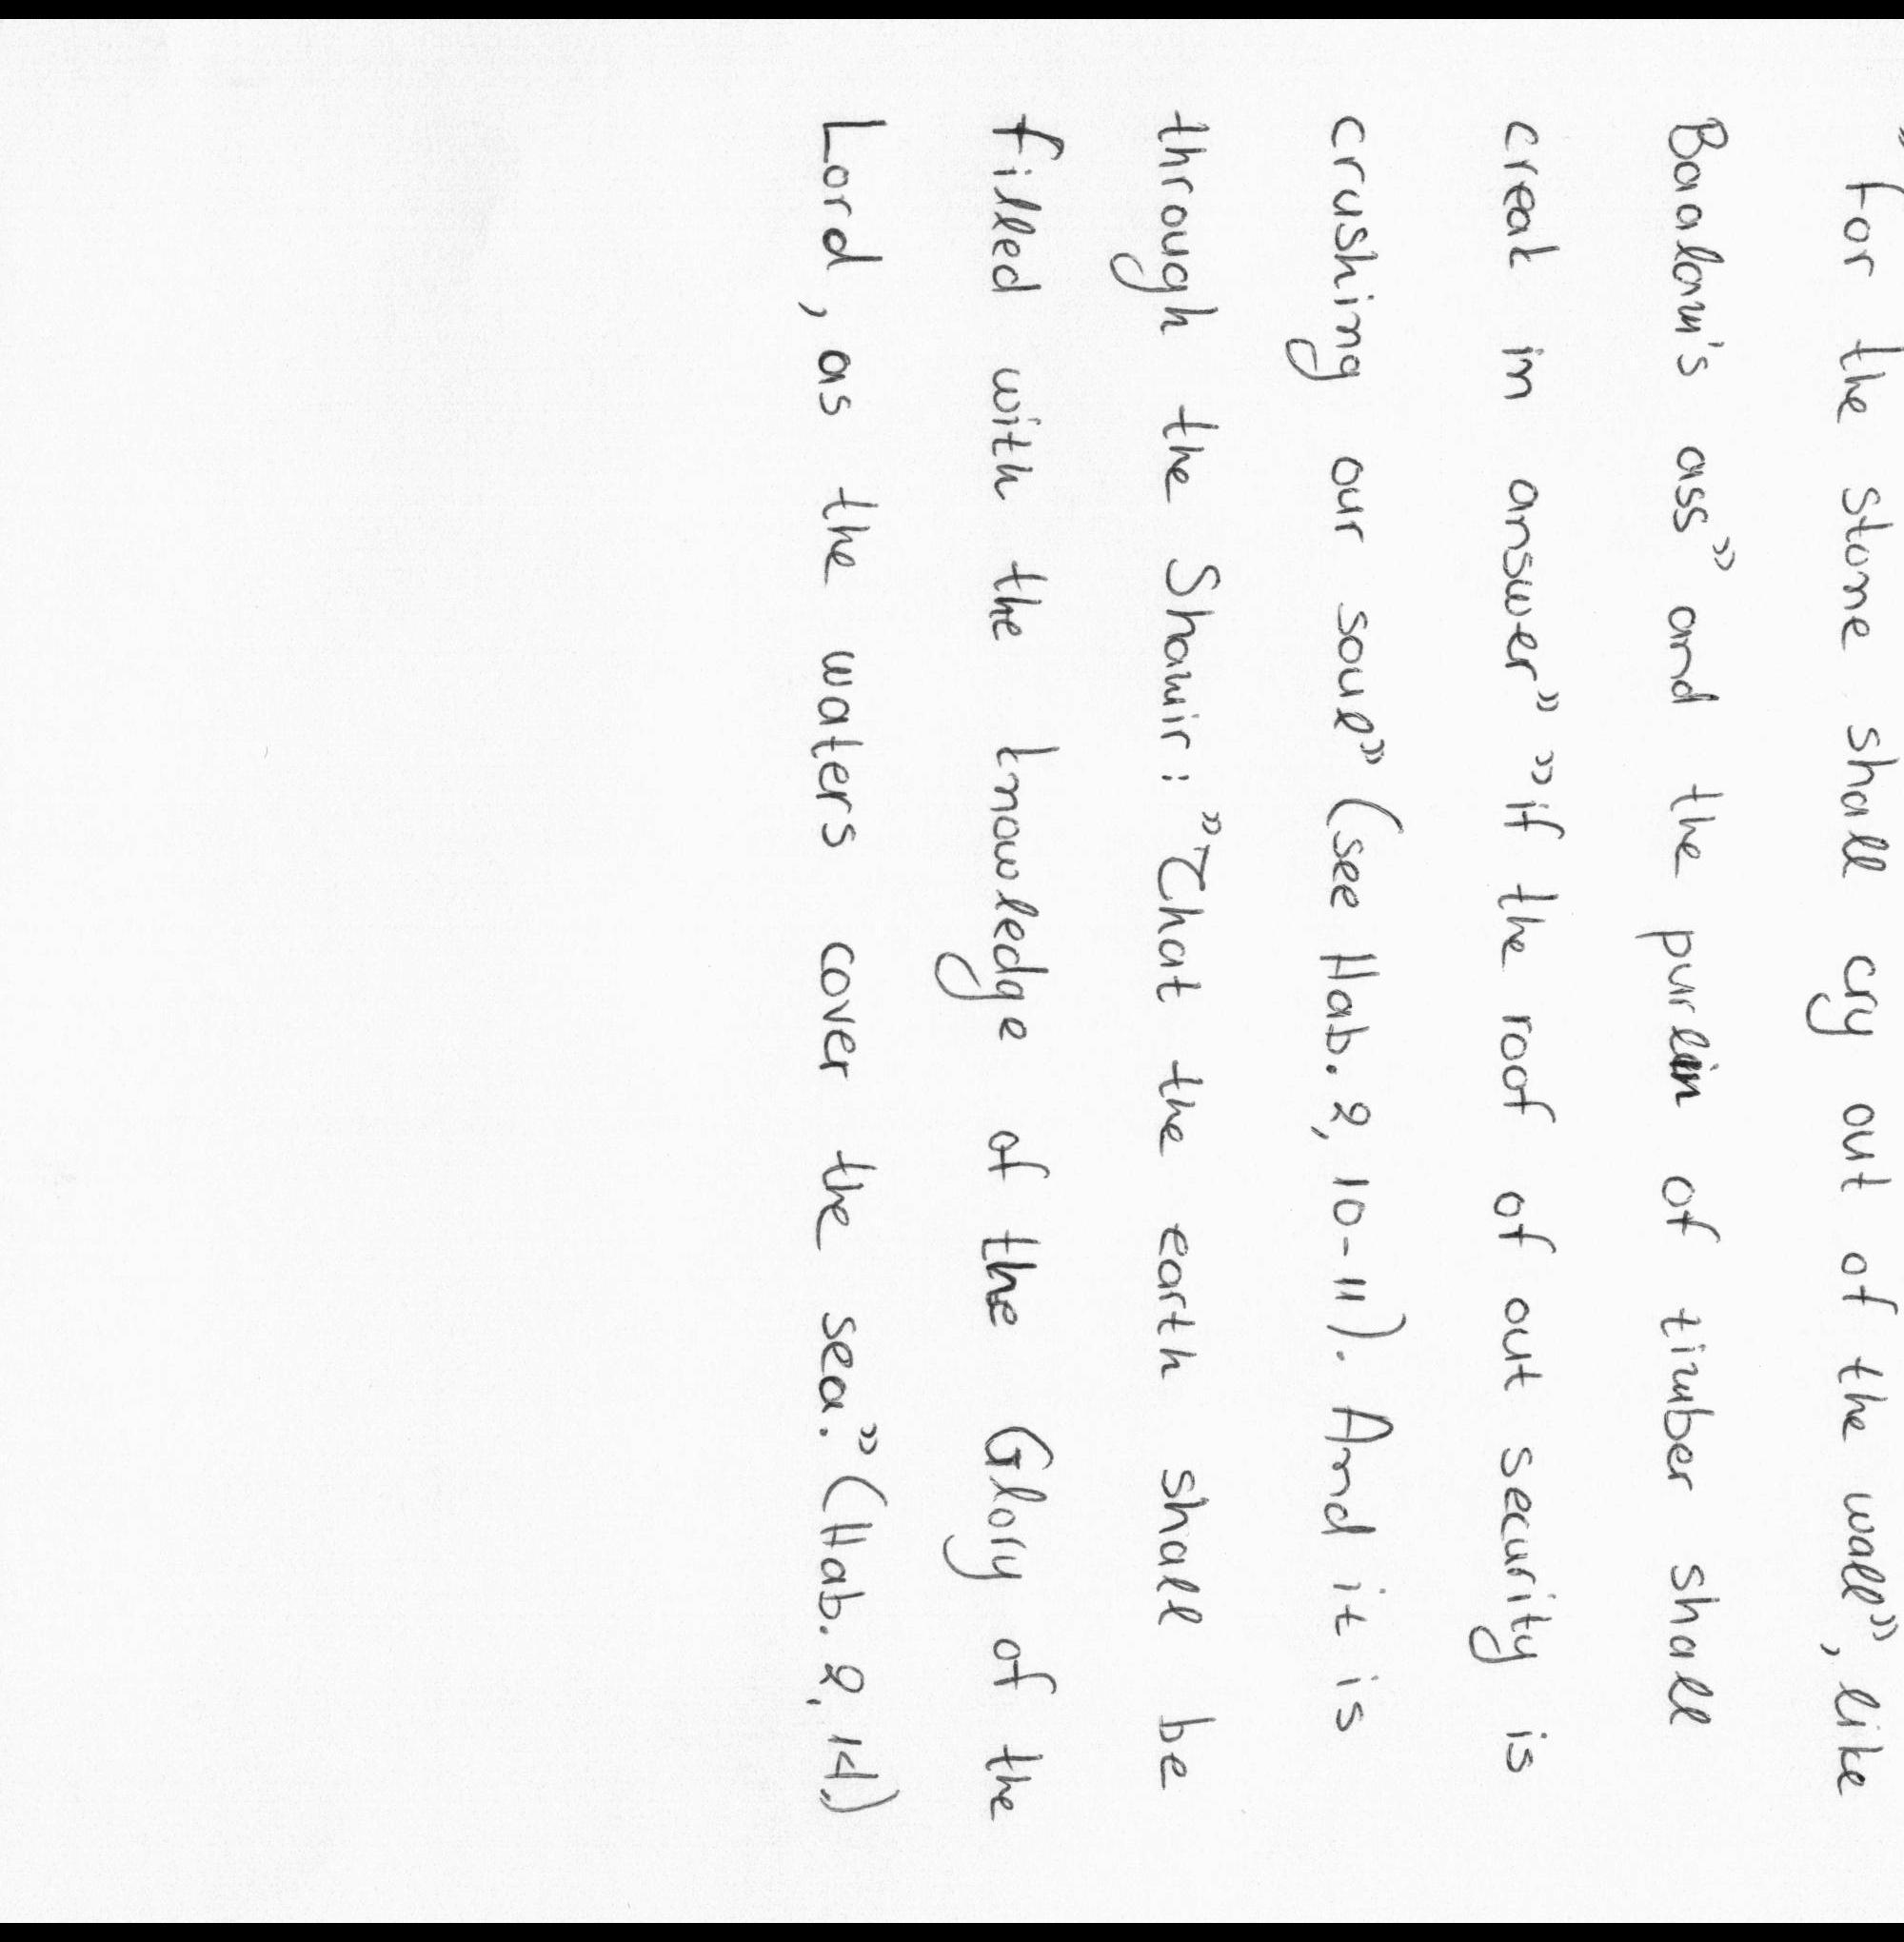 "for the stone shall cry out of the wall", like
Baalam's ass" and the purlin of timber shall
creak in answer" "if the roof of out security is
crushing our soul" (see Hab. 2, 10-11). And it is
through the Shamir: "That the earth shall be
filled with the knowledge of the Glory of the
Lord, as the waters cover the sea." (Hab. 2, 14)